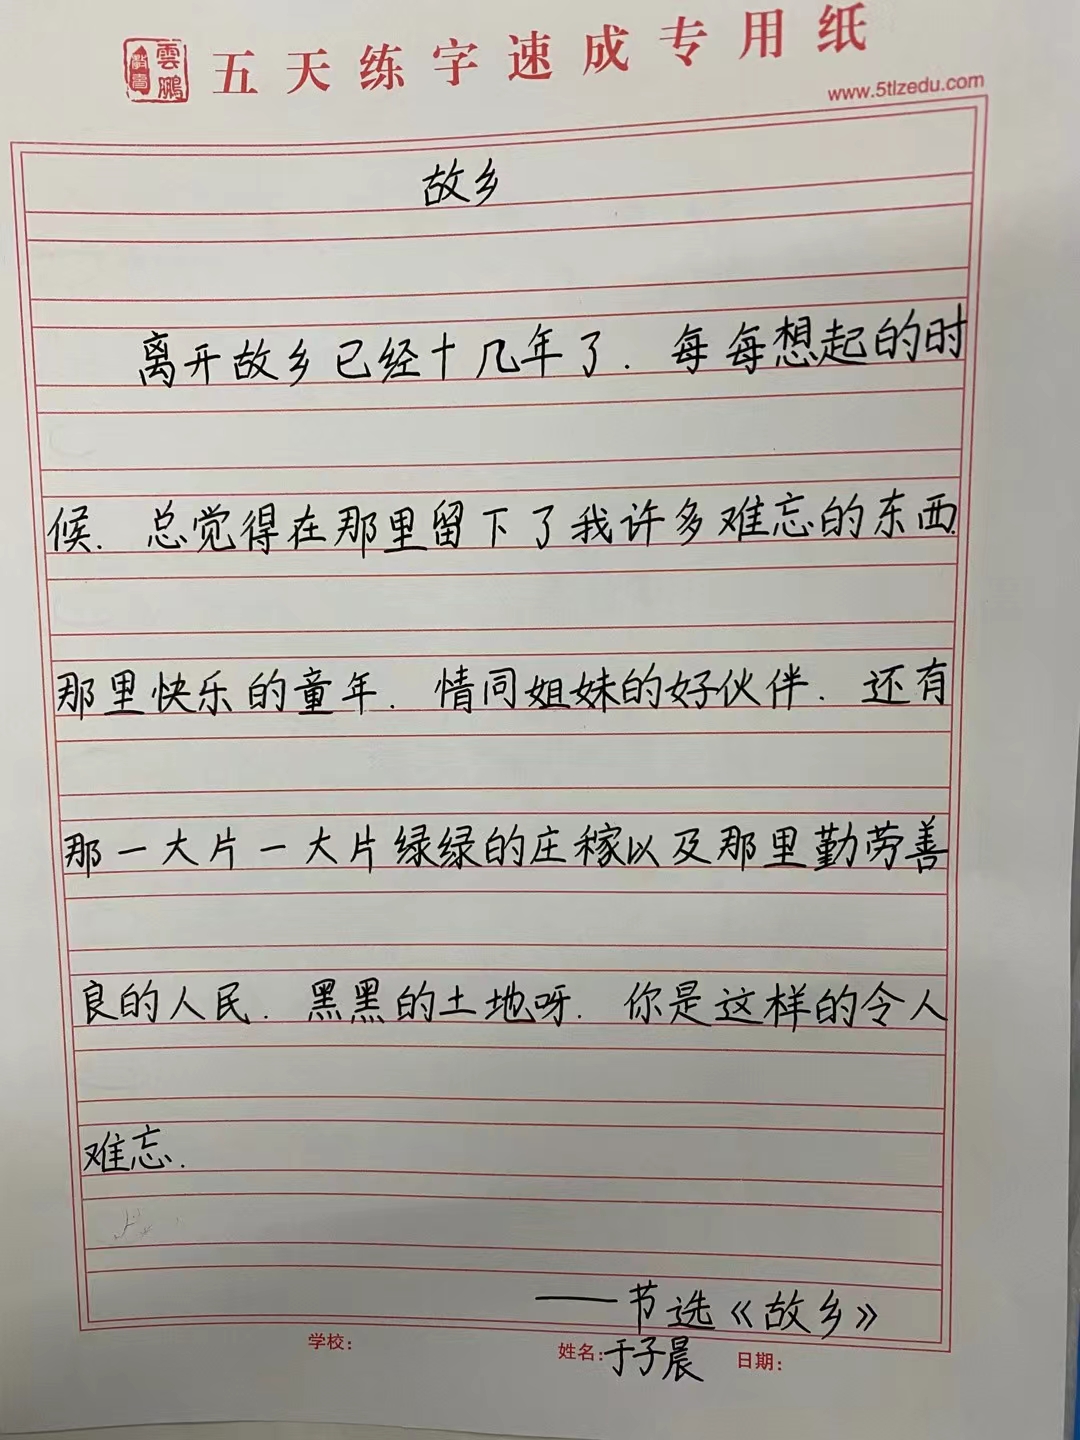 雲鵬教育
五天练字速成专用纸
www.5tlzedu.com
故乡
离开故乡已经十几年了.每每想起的时
候.总觉得在那里留下了我许多难忘的东西.
那里快乐的童年.情同姐妹的好伙伴.还有
那一大片一大片绿绿的庄稼以及那里勤劳善
良的人民.黑黑的土地呀.你是这样的令人
难忘.
——节选《故乡》
学校: 姓名:于子晨 日期: